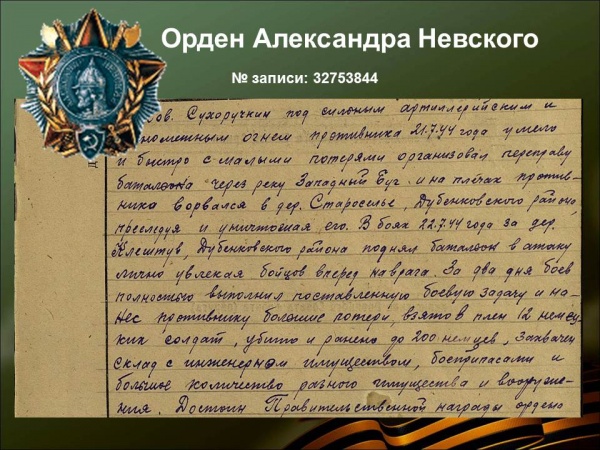 Орден Александра Невского
№ записи: 32753844
ов. Сухоручкин под сильным артиллерийским и
нометным огнем противника 21.7.44 года умело
и быстро с малыми потерями организовал переправу
батальона через реку Западный Буг и на плечах против-
ника ворвался в дер. Староселье, Дубенковского района,
преследуя и уничтожая его. В боях 22.7.44 года за дер.
Клештув, Дубенковского района поднял батальон в атаку
лично увлекая бойцов вперед на врага. За два дня боев
полностью выполнил поставленную боевую задачу и на-
нес противнику большие потери, взято в плен 12 немец-
ких солдат, убито и ранено до 200 немцев, Захвачен
склад с инженерном имуществом, боеприпасами и
большое количество разного имущества и вооруже-
ния. Достоин Правительственной награды ордена